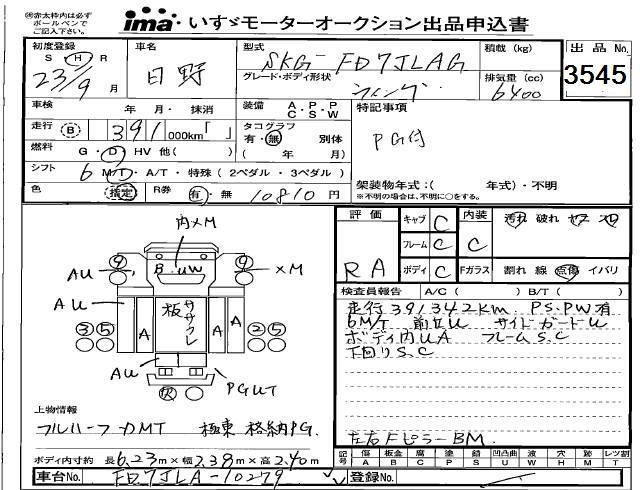 ※赤太枠内は必ず
ボールペンで
ご記入下さい。
ima いすゞモーターオークション出品申込書
初度登録 車名 型式 積載 (kg) 出品No.
S H R
23/9 月 日野 SKG-FD7JLAG 3545
グレード・ボディ形状 排気量 (cc)
ウィング 6400
車検 年 月・ 抹消 装備 A・P・P C・S・W 特記事項
走行 B 391 000km「 」 タコグラフ PG付
有・無 別体
燃料 G・D・HV 他( ) ( 年 月)
シフト 6 M/T・A/T・特殊 (2ペダル・3ペダル) 架装物年式:( 年式)・不明
※不明の場合は、不明に○をする。
色 指定 R券 有・無 10810 円
評価 キャブ C 内装 汚れ 破れ
フレーム C C
RA ボディ C Fガラス 割れ 線 点傷 イバリ
内×M
B.UW
AU ×M
AU
A 板ササクレ A
③⑤ ②⑤
AU PGUT
検査員報告 A/C( ) B/T( )
走行391342km PS.PW有
6M/T 前廻U サイドガードU
ボディ内UA フレームS.C
下回りS.C
左右FピラーBM
上物情報
フルハーフ DMT 極東 格納PG.
ボディ内寸約 長6.23m×幅2.39m×高2.40m
記号 傷 板金 腐 塗 錆 凹 凸 曲 波 穴 跡 レツ 割
A B C P S U W H M T
車台No. FD7JLA-10279 登録No.